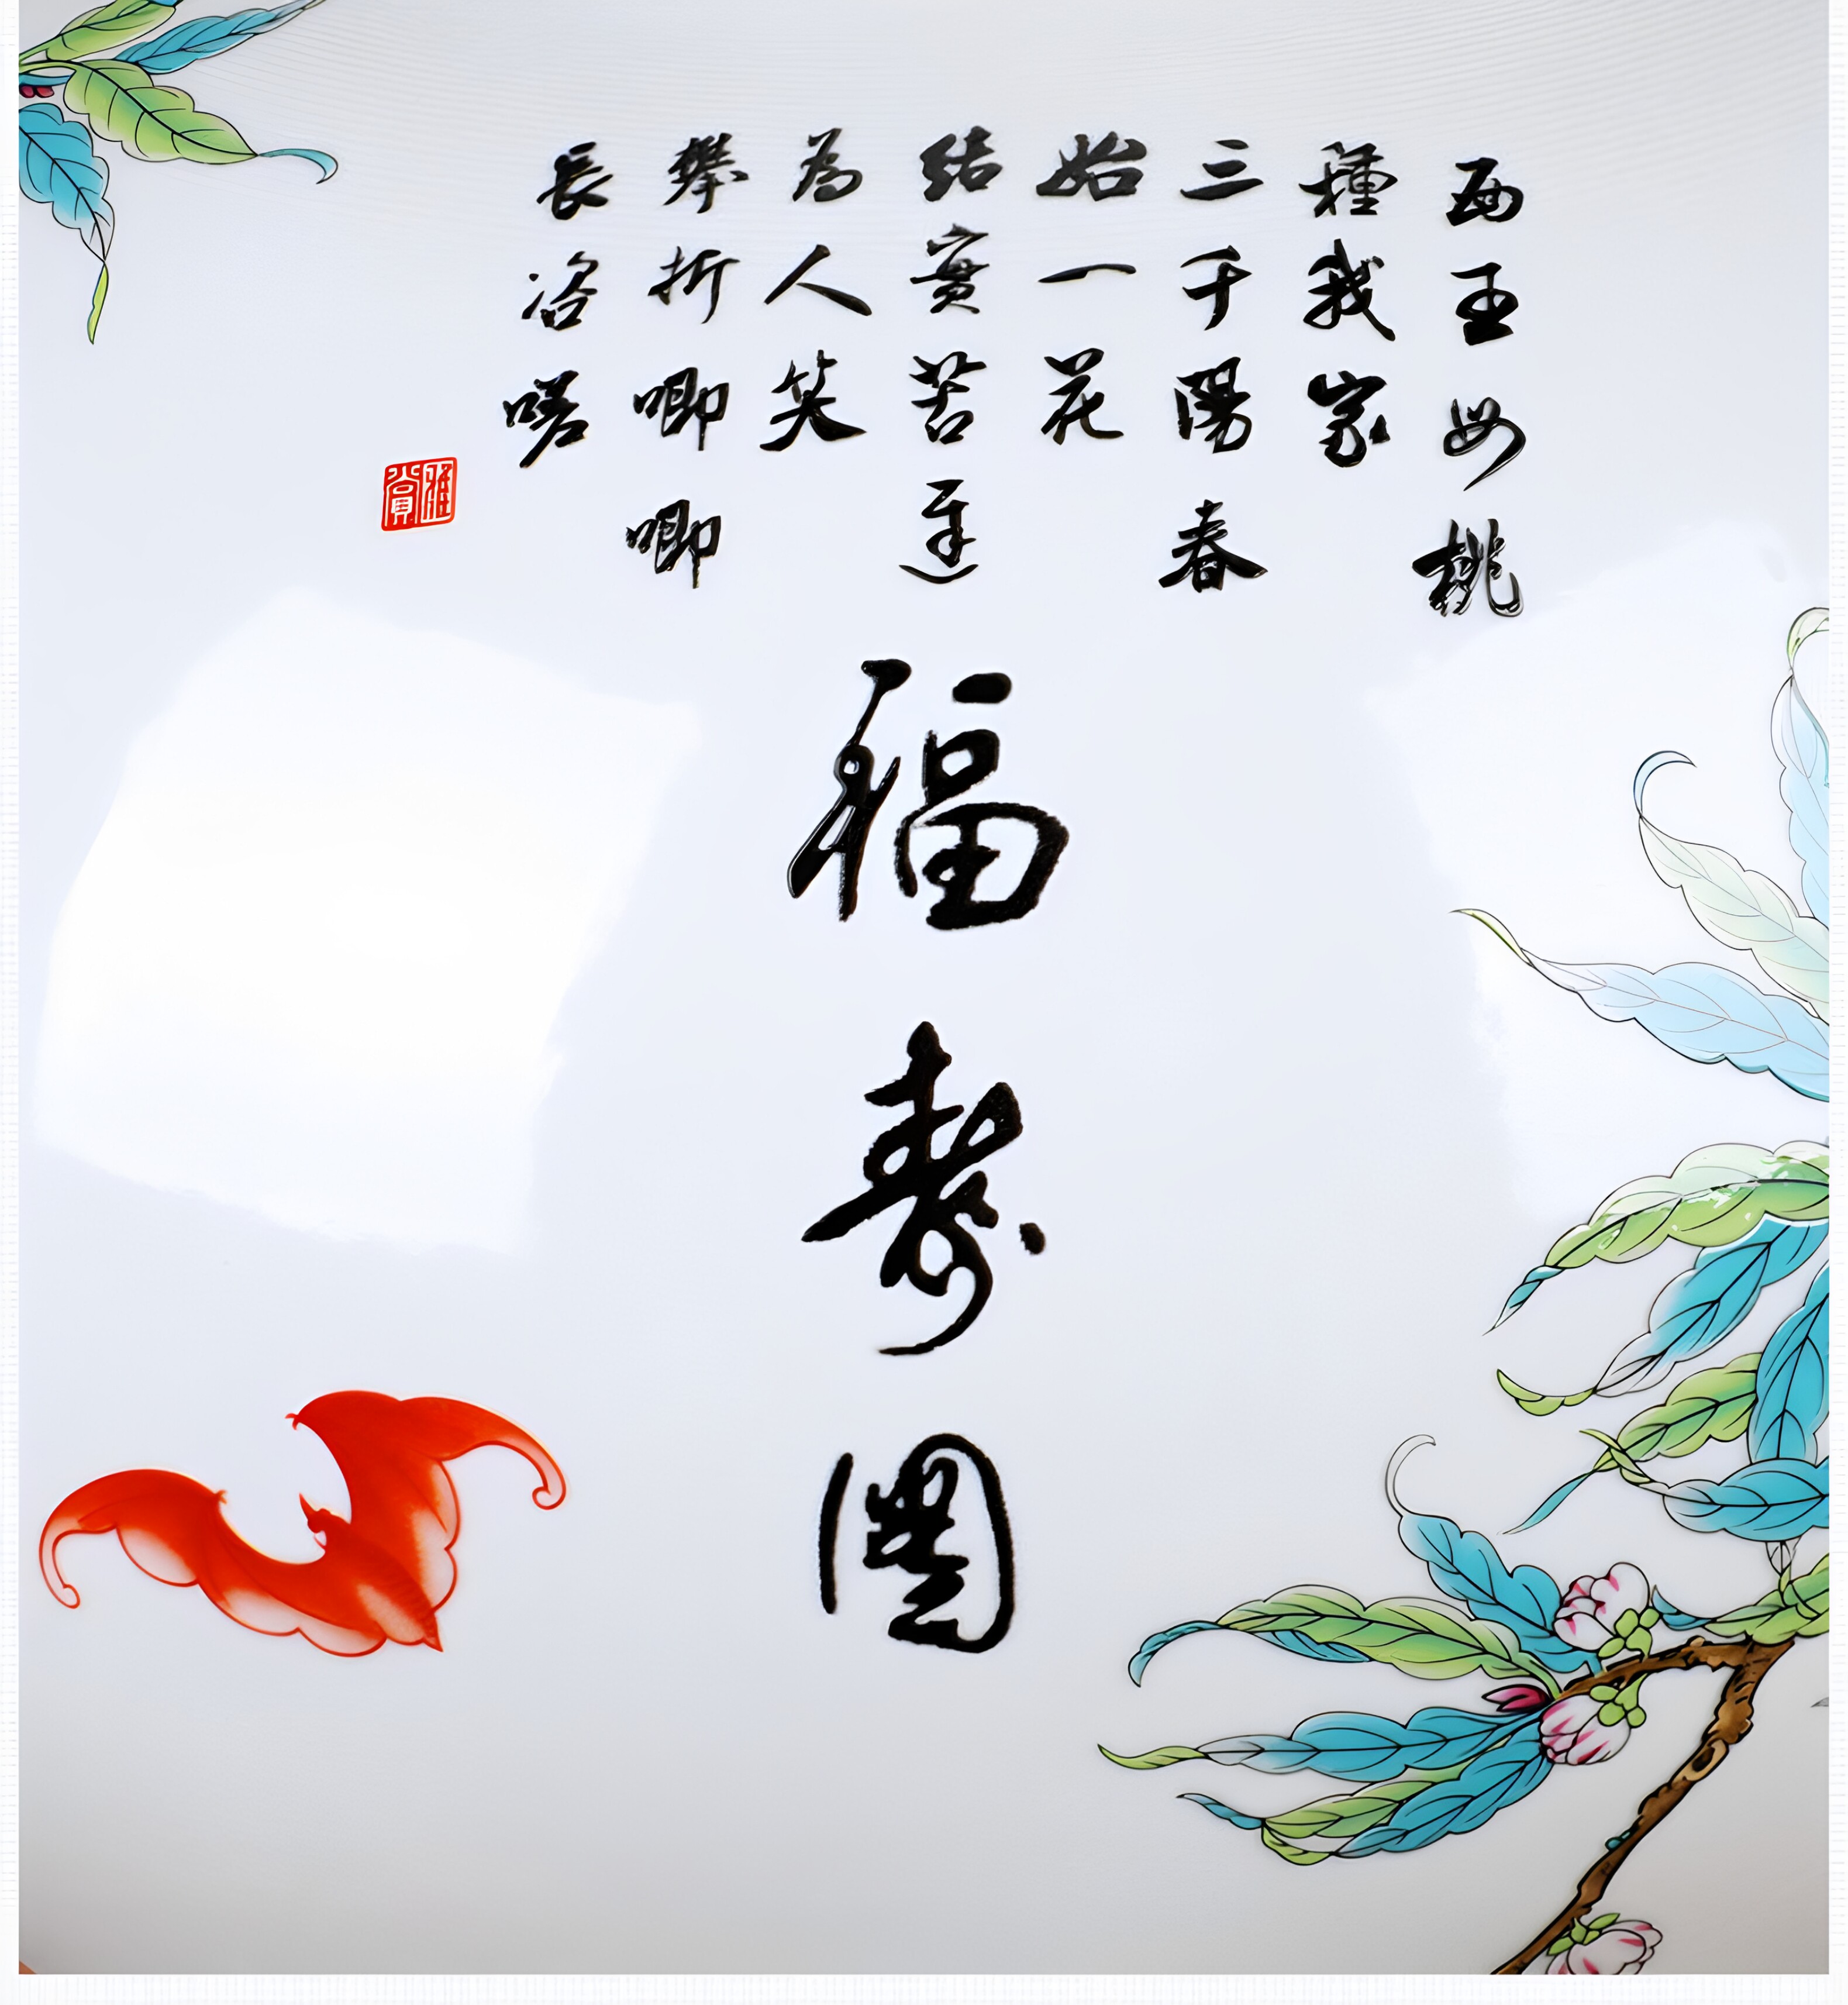 西王母桃
種我家
三千陽春
始一花
結實苦遲
為人笑
攀折唧唧
長咨嗟
雅賞
福
壽
圖